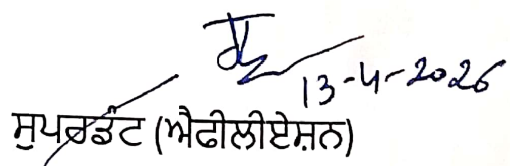 13-4-2026
ਸੁਪਰਡੰਟ (ਐਫੀਲੀਏਸ਼ਨ)